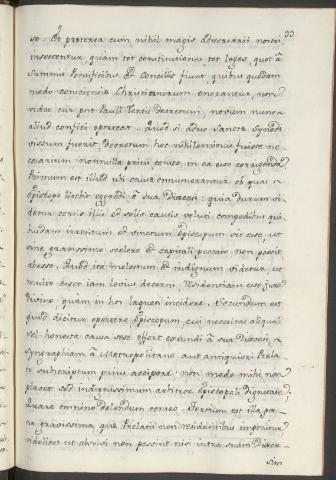 33
se. Et præterea cum nihil magis adversarii nostri
insectentur, quam tot constitutiones, tot leges, quot à
summis Pontificibus et Conciliis fiunt, quibus quodam
modo conscientiæ Christianorum onerantur, non
video cur post Pauli Tertii Decretum, novum nunc
aliud confici oporteat. Quod si adhuc Sanctæ Synodi
visum fuerit Decretum hoc nihilominus fuisse ne-
cessarium nonnulla prius censeo, in ea esse corrigenda
Primum est illud ubi causæ enumerantur ob quas
Episcopo liceat egredi è sua Diœcesi: quia durum vi-
detur certis illis et solis causis veluti compedibus qui-
busdam irretitum et vinctum Episcopum sic esse, ut
sine gravissimo scelere et capitali peccato non possit
abesse. Quod ita molestum et indignum videtur, ut
multo esset iam levius decerni, Residentiam esse jure
Divino, quam in hos laqueos incidere. Secundum est
quod dicitur oportere Episcopum, cui necessitas aliqua
vel honesta causa sese offert exeundi à sua Diœcesi,
syngrapham à Metropolitano aut antiquiori Præla-
to subscriptam prius accipere. non modo mihi non
placet sed indignissimum arbitror Episcopali dignitate.
Quare omnino delendum censeo. Tertium est illa pœ-
na gravissima, quæ Prælatis non residentibus imponitur
videlicet ut absentes non possint nisi intra suam Diœce-
sim